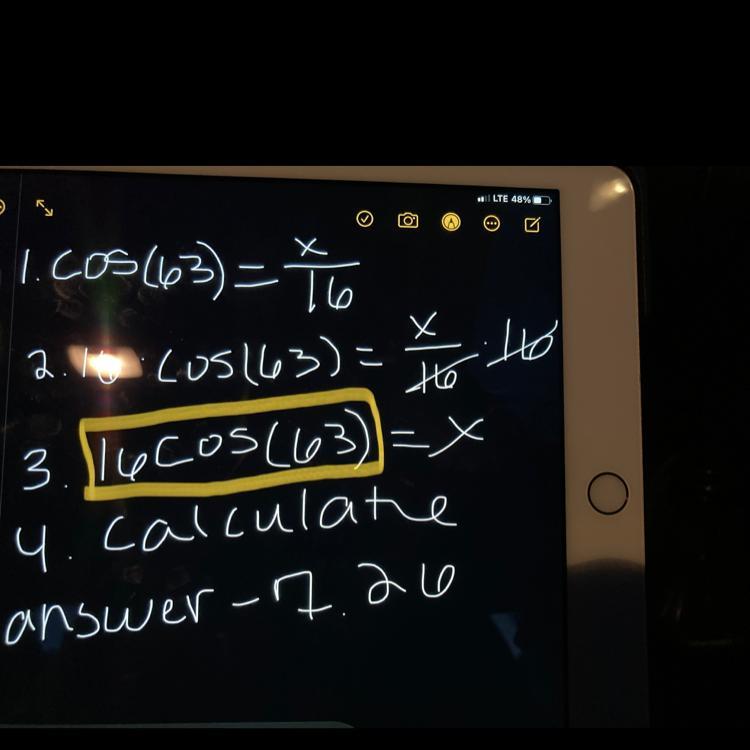 LTE 48%
1. cos(63) = x/16
2. 16 · cos(63) = x/16 · 16
3. 16cos(63) = x
4. calculate
answer - 7.26